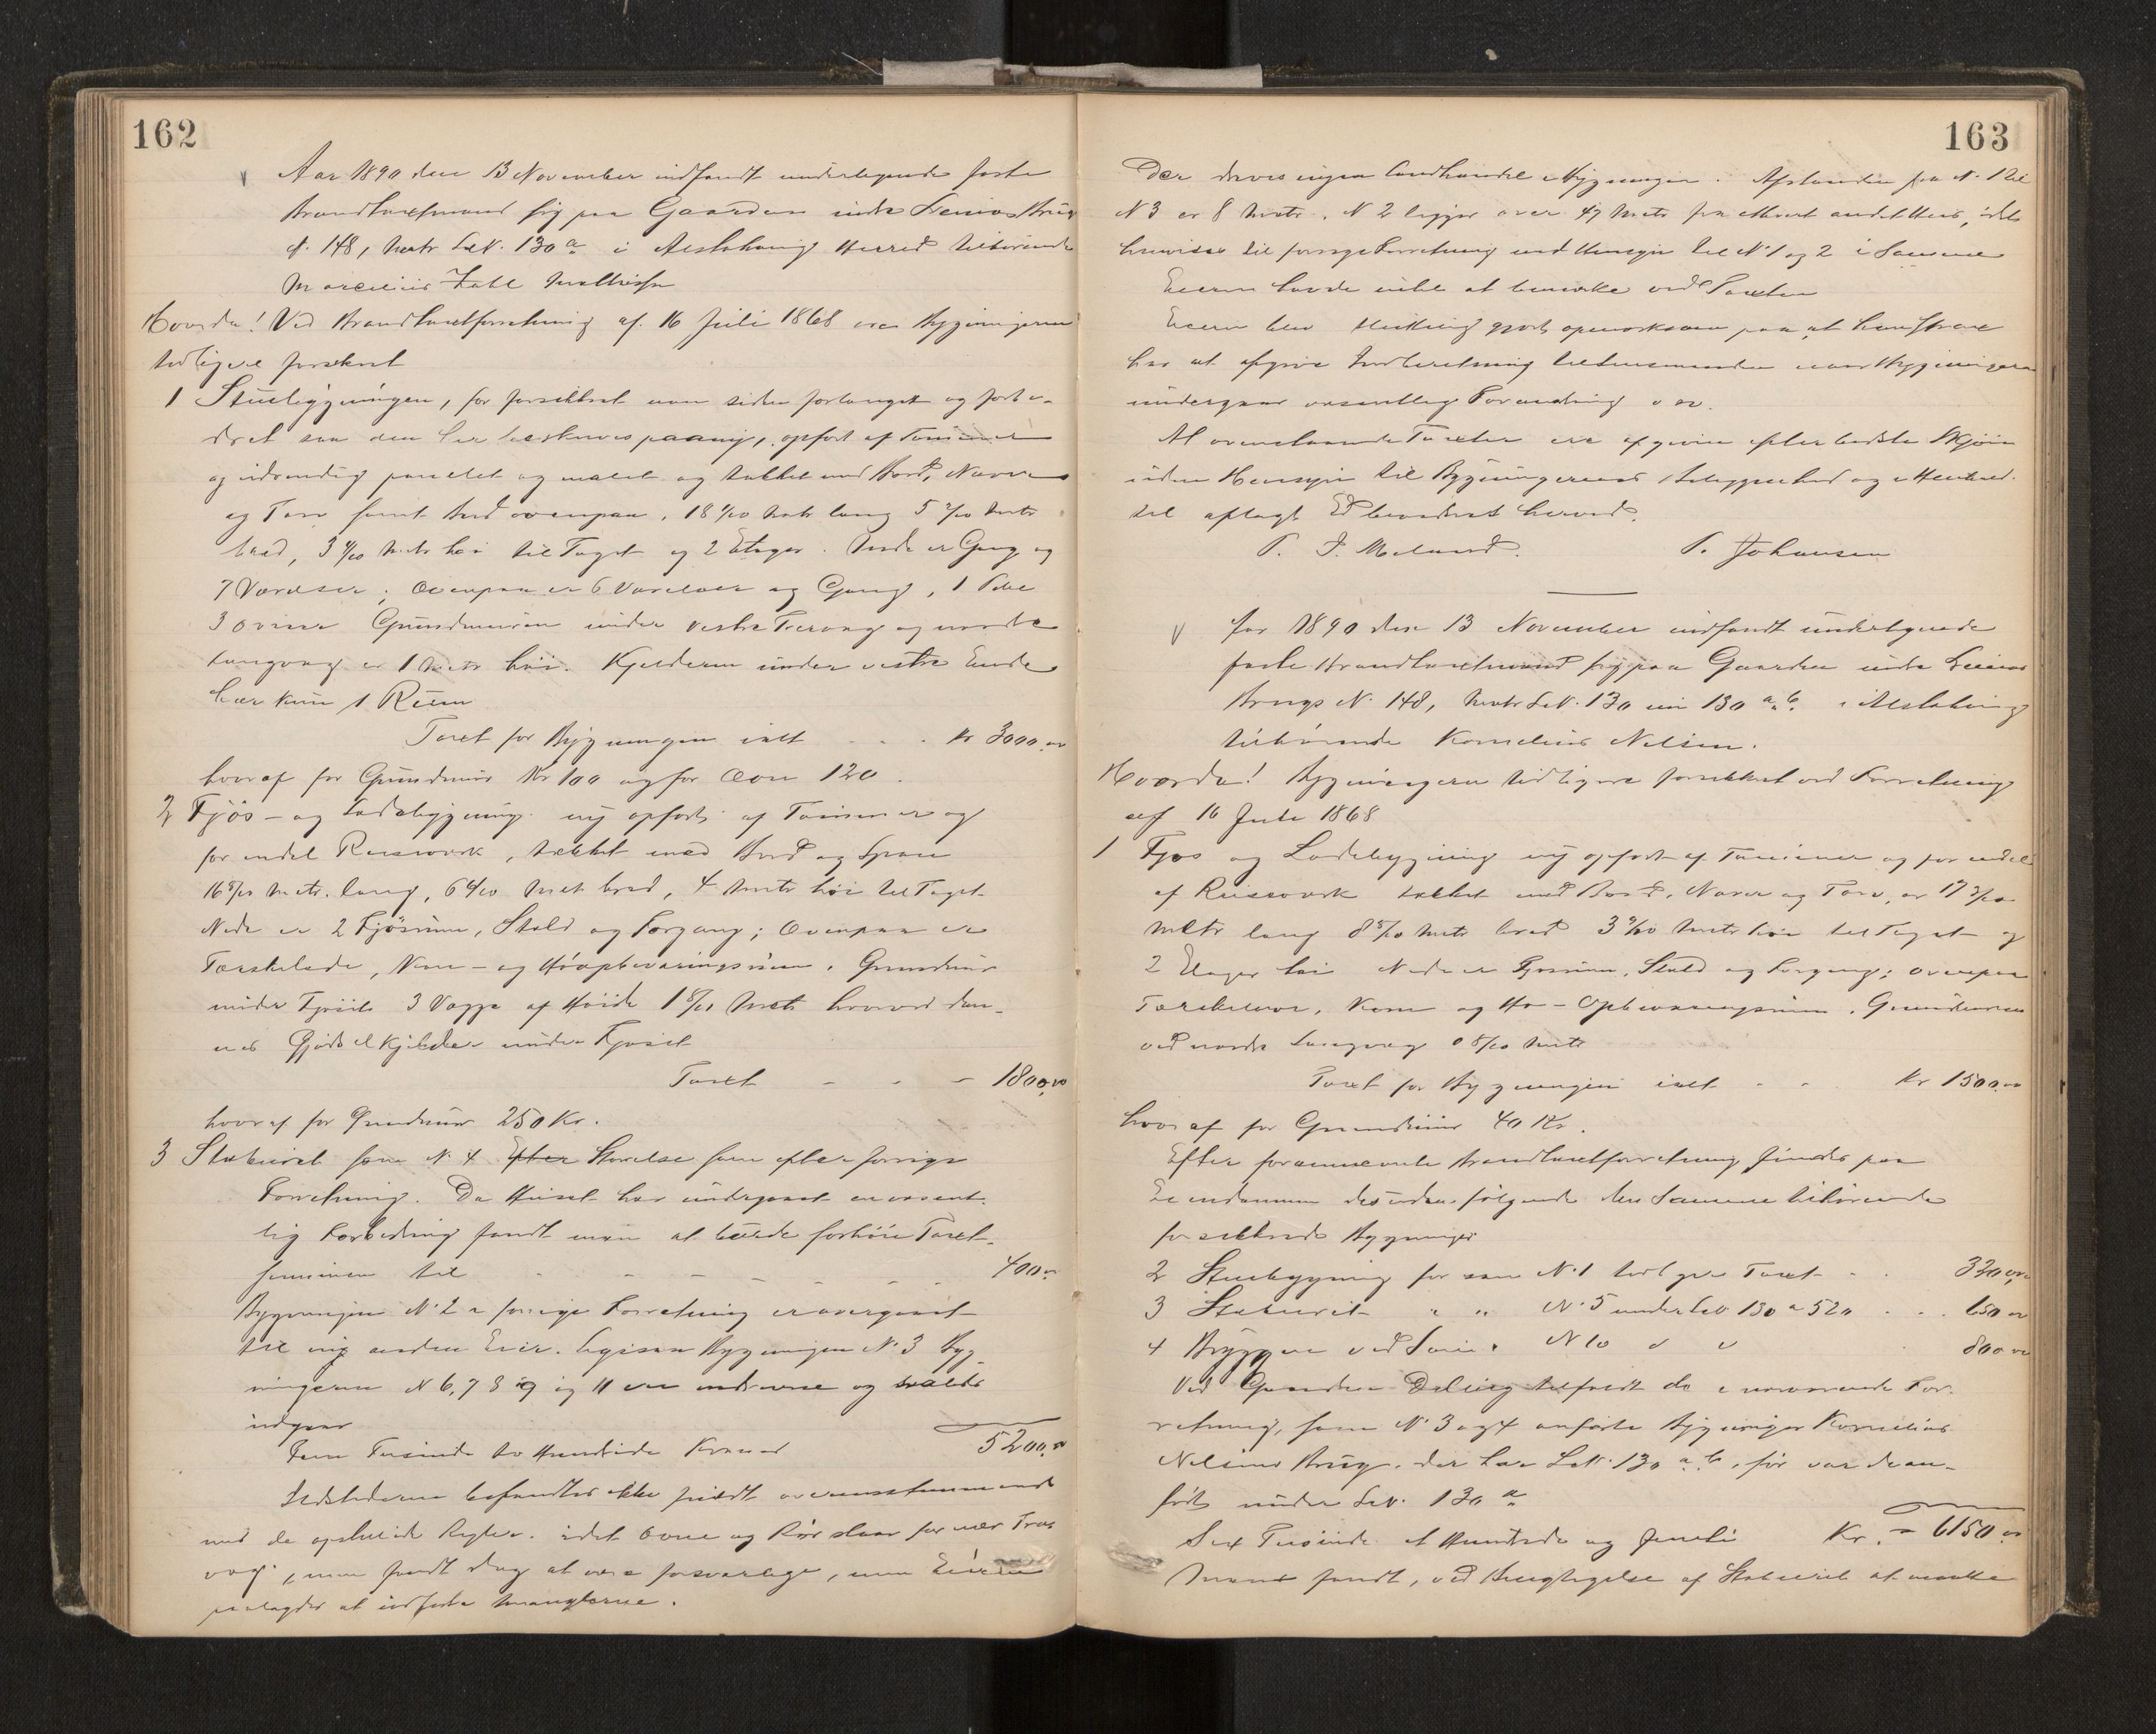 162
Aar 1890 den 13 November indfandt undertegnede faste
Brandtaxtmænd sig paa Gaarden indre Brug
N. 148, Matr. LeN. 130 a i Alstahoug Herred tilhørende
Marcelius Zahl Mathisen
Hvorda! Ved Brandtaxtforretning af 16 Juli 1868 ere Bygningerne
tidligere forsikret
1 Stuebygningen, før forsikkret men siden forlænget og forbe-
dret saa den her beskrives paany, opført af Tømmer
og udvendig panelet og malet og tækket med Bord, Næver
og Torv samt Bord ovenpaa, 18 4/10 Metr lang 5 7/10 Metr
bred, 3 4/10 Metr høi til Taget og 2 Etager. Nede er Gang og
7 Værelser; Ovenpaa er 6 Værelser og Gang, 1 Pibe
3 ovne Grundmuren under vestre Tvervæg og nordre
Langvæg er 1 Metr høi. Kjelderen under vestre Ende
har kun 1 Rum
Taxt for Bygningen ialt - - - Kr 3000.00
hvoraf for Grundmur Kr 100 og for Ovne 120.
2 Fjøs- og Ladebygning ny opført af Tømmer og
for endel Reisverk, tækket med Bord og Spaan
16 5/10 Metr. lang, 6 4/10 Metr bred, 4 Metr høi til Taget
Nede er 2 Fjøsrum, Stald og Forgang; Ovenpaa er
Tærskelade, Korn- og Høopbevaringsrum. Grundmur
under Fjøsets 3 Vægge af Høide 1 8/10 Metr hvorved dan-
nes Gjødselkjelder under Fjøset
Taxt - - - 1800,00
hvoraf for Grundmur 250 Kr.
3 Stabburet som N. 4 Efter Størrelse som efter forrige
Forretning. Da Huset har undergaaet en væsent-
lig Forbedring fandt man at burde forhøie Taxt-
summen til - - - - - - 400.00
Bygningen N. 2 i forrige Forretning er overgaaet
til ny anden Eier. ligesaa Bygningen N. 3 Byg-
ningerne N 6, 7 8 9 og 11 ere nedrevne og
udgaar
Fem Tusinde to Hundrede Kroner 5200.00
Ildstederne befandtes ikke fuldt overensstemmende
med de Regler. idet Ovne og Rør staar for nær Træ-
væg, men fandt dog at være forsvarlige, men Eieren
paalagdes at Manglerne.
163
Der drives ingen Landhandel i Bygningen. Afstanden fra N. 1 til
N 3 er 8 Metr. N 2 ligger over 47 Metr fra ethvert andet Huus, idet
henvises til forrige Forretning med Hensyn til N. 1 og 2 i Samme
Eieren havde intet at bemærke ved Taxten
Eieren blev gjort opmærksom paa, at han
har at afgive Indberetning til Lensmanden naar Bygningerne
undergaar væsentlig Forandring o sv.
At ovenstaaende Taxter ere afgivne efter bedste Skjøn
uden Hensyn til Bygningernes Beliggenhed og i Henhold
til aflagt Ed bevidnes herved.
P. J. Meland. P. Johansen
Aar 1890 den 13 November indfandt undertegnede
faste Brandtaxtmænd sig paa Gaarden indre
Brugs N. 148, Matr LeN. 130 nu 130 a. b. i Alstahoug
tilhørende Kornelius Nelsen.
Hvorda! Bygningerne tidligere forsikkret ved Forretning
af 16 Juli 1868
1 Fjøs og Ladebygning ny opført af Tømmer og for endel
af Reisverk tækket med Bord, Næver og Torv, er 17 3/10
Metr lang 8 5/10 Metr bred 3 9/10 Metr høi til Taget og
2 Etager høi Nede er Fjøsrum, Stald og Forgang; ovenpaa
Tærskelove, Korn og Hø-Opbevaringsrum. Grundmuren
ved nordre Langvæg 0 8/10 Metr
Taxt for Bygningen ialt - - Kr 1500.00
hvoraf for Grundmur 40 Kr.
Efter forannævnte Brandtaxtforretning findes paa
Eiendommen desuden følgende den Samme tilhørende
forsikkrede Bygninger
2 Stuebygning før som N. 1 tidligere Taxt - - 3200,00
3 Stabburet " " N. 5 under LeN 130 a 520 - - - 650.00
4 Bryggen ved Søen. N 10 " " 800.00
Ved Gaardens Deling tilfaldt de i nærværende For-
retning, som N. 3 og 4 anførte Bygninger Kornelius
Nelsens Brug. der har LeN. 130 a. b., før var de an-
ført under LeN. 130 a
Sex Tusinde et Hundrede og femti Kr. 6150.00
Mænd fandt, ved Besigtigelse af Stabburet at maatte